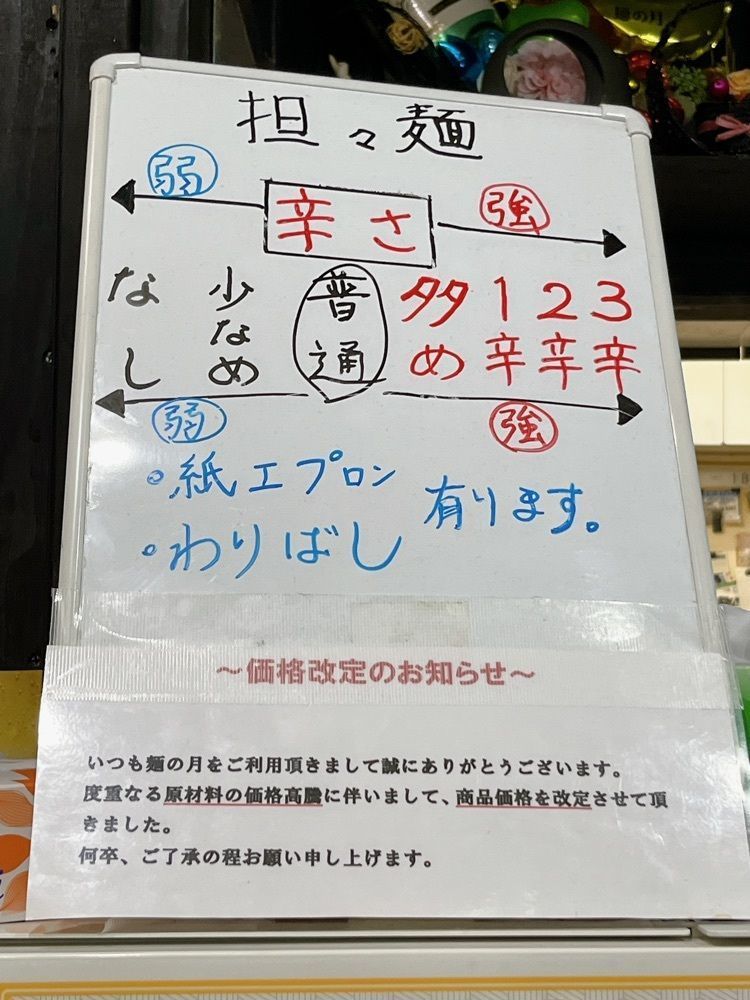 麺の月
担々麺
弱
辛さ
強
なし 少なめ 普通 多め 1辛 2辛 3辛
弱
強
・紙エプロン
・わりばし
有ります。
～価格改定のお知らせ～
いつも麺の月をご利用頂きまして誠にありがとうございます。
度重なる原材料の価格高騰に伴いまして、商品価格を改定させて頂
きました。
何卒、ご了承の程お願い申し上げます。